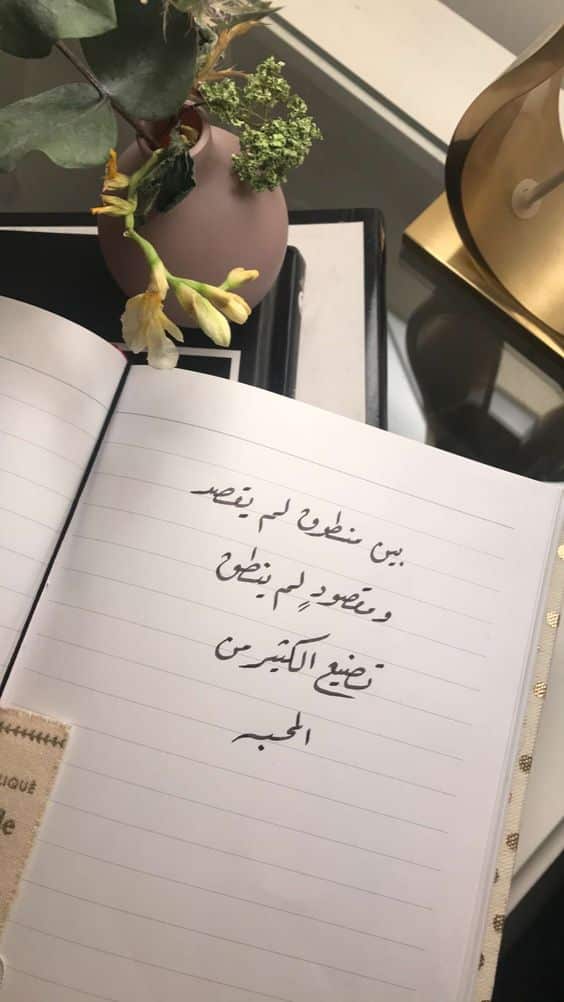 بين منطوق لم يقصد
ومقصودٍ لم ينطق
تضيع الكثير من
المحبه
LIQUÉ
le